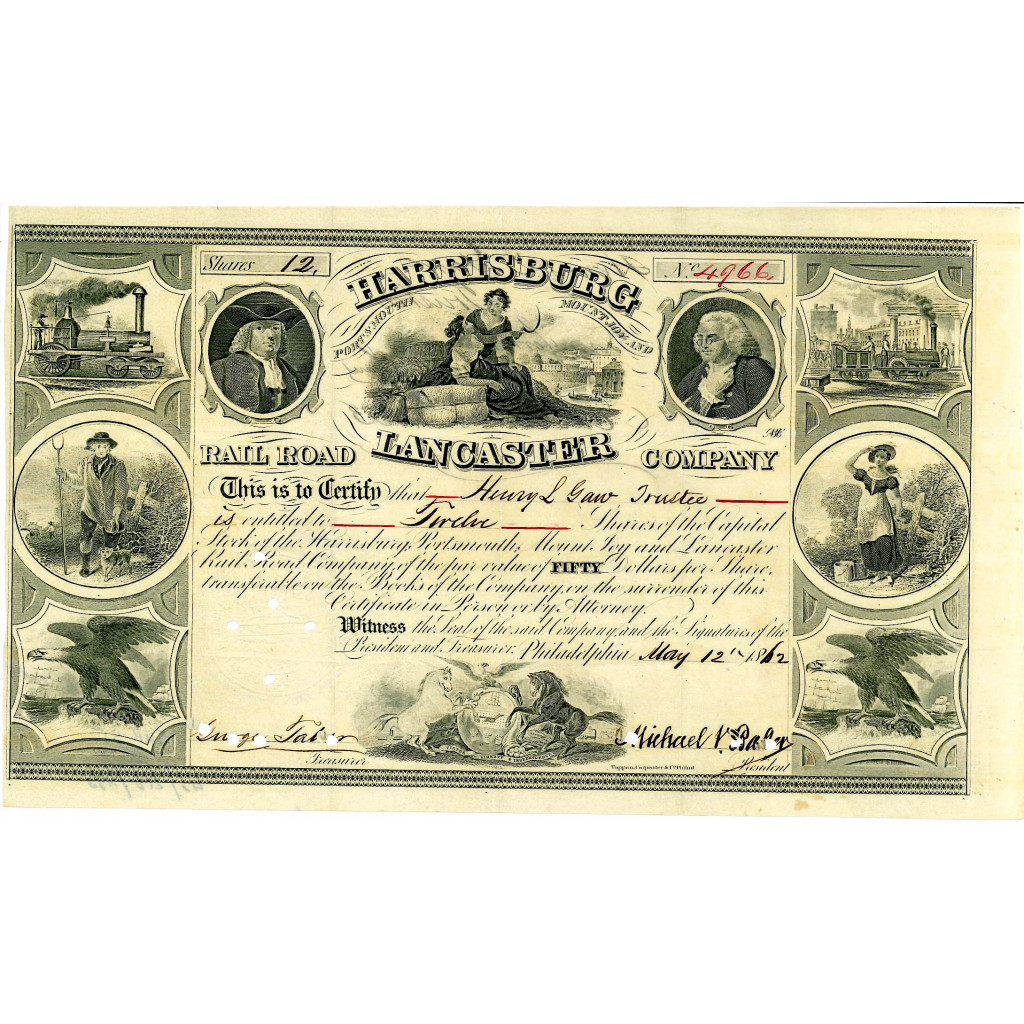 Shares 12.
No. 4966
HARRISBURG
PORTSMOUTH MOUNT JOY AND
LANCASTER
RAIL ROAD COMPANY
This is to Certify that Henry L Gaw Trustee
is entitled to Twelve Shares of the Capital
Stock of the Harrisburg, Portsmouth, Mount Joy and Lancaster
Rail Road Company, of the par value of FIFTY Dollars per Share,
transferable on the Books of the Company, on the surrender of this
Certificate in Person or by Attorney.
Witness the Seal of the said Company, and the Signatures of the
President and Treasurer. Philadelphia May 12 1862
George Taber
Michael V. Baker
Treasurer
President
Toppan, Carpenter & Co. Philada